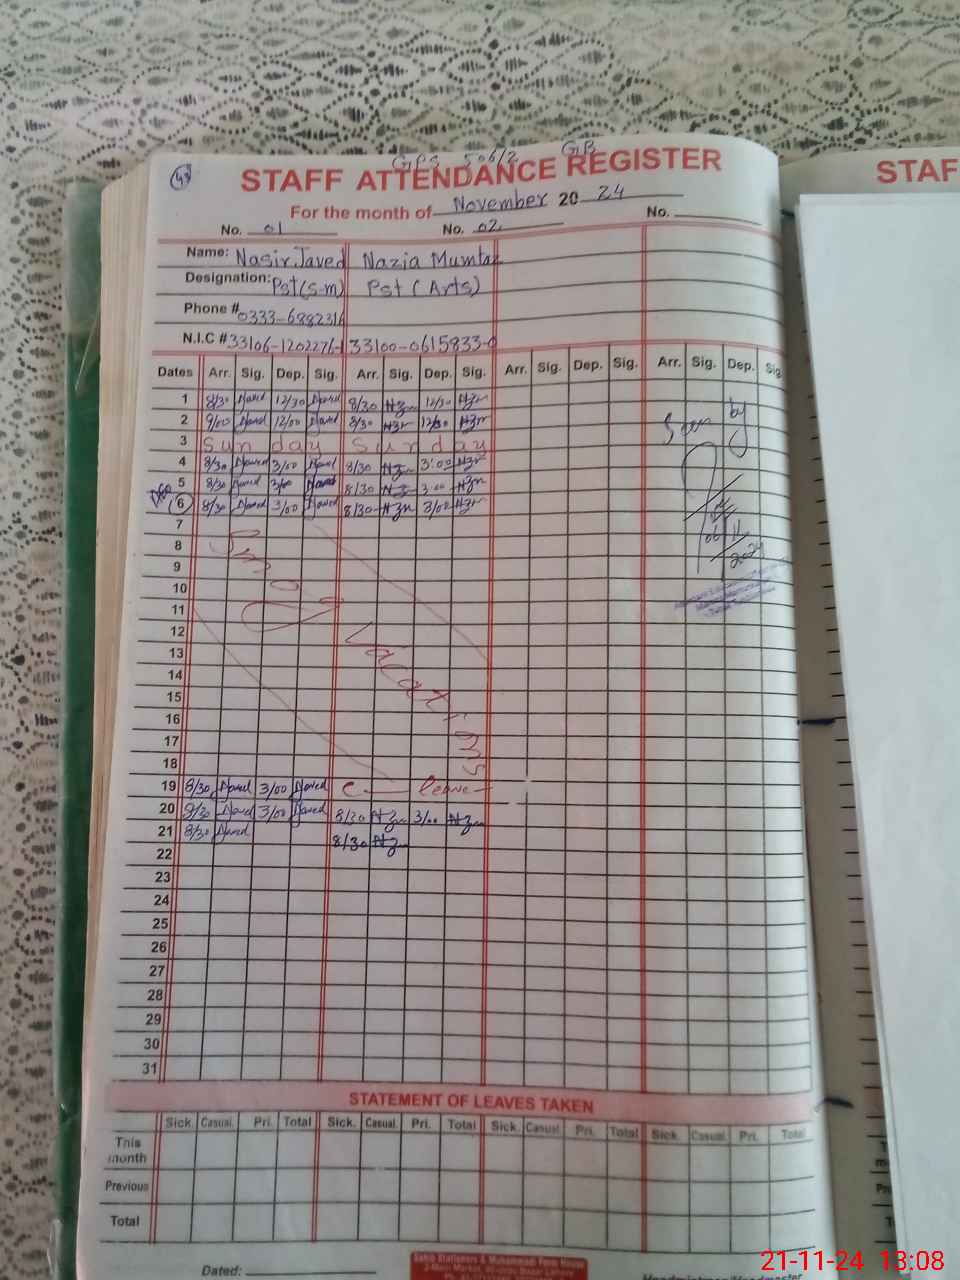 43 GPS 506/2 GB
STAFF ATTENDANCE REGISTER
STAF
For the month of November 20 24
No. 01 No. 02 No.
Name: Nasir Javed Nazia Mumtaz
Designation: Pst (S-m) Pst (Arts)
Phone # 0333-6882316
N.I.C # 33106-1202276-1 33100-0615833-0
Dates Arr. Sig. Dep. Sig. Arr. Sig. Dep. Sig. Arr. Sig. Dep. Sig. Arr. Sig. Dep. Sig.
1 8/30 Javed 12/30 Javed 8/30 Nzm 12/30 Nzm
2 9/00 Javed 12/00 Javed 8/30 Nzm 12/30 Nzm
3 Sunday Sunday
4 8/30 Javed 3/00 Javed 8/30 Nzm 3:00 Nzm
5 8/30 Javed 3/00 Javed 8/30 Nzm 3:00 Nzm
6 8/30 Javed 3/00 Javed 8/30 Nzm 3/00 Nzm
Seen by
06/11/2024
7
8
9
10
11
12
13
14
15
16
17
18
Smog Vacations
19 8/30 Javed 3/00 Javed C leave
20 8/30 Javed 3/00 Javed 8/30 Nzm 3/00 Nzm
21 8/30 Javed 8/30 Nzm
22
23
24
25
26
27
28
29
30
31
STATEMENT OF LEAVES TAKEN
Sick. Casual. Pri. Total Sick. Casual. Pri. Total Sick. Casual. Pri. Total Sick. Casual. Pri. Total
This month
Previous
Total
Dated:
21-11-24 13:08